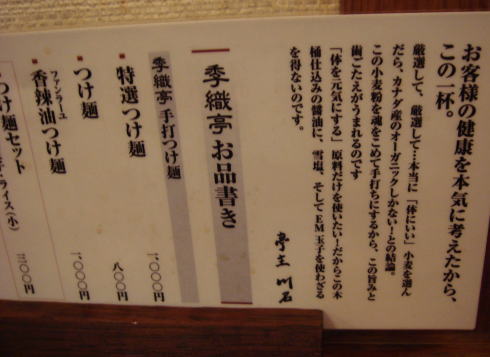 お客様の健康を本気に考えたから、
この一杯。
厳選して、厳選して…本当に「体にいい」小麦を選ん
だら、カナダ産のオーガニックしかないーとの結論。
この小麦粉を魂をこめて手打ちにするから、この旨みと
歯ごたえがうまれるのです
「体を元気にする」原料だけを使いたいーだからこの木
桶仕込みの醤油に、雪塩、そしてEM玉子を使わざる
を得ないのです。
亭主 川石
季織亭 お品書き
季織亭 手打つけ麺
一、〇〇〇円
特選つけ麺
八〇〇円
つけ麺
ファンラーユ
香辣油つけ麺
一、〇〇〇円
つけ麺セット
ライス(小)
三〇〇円